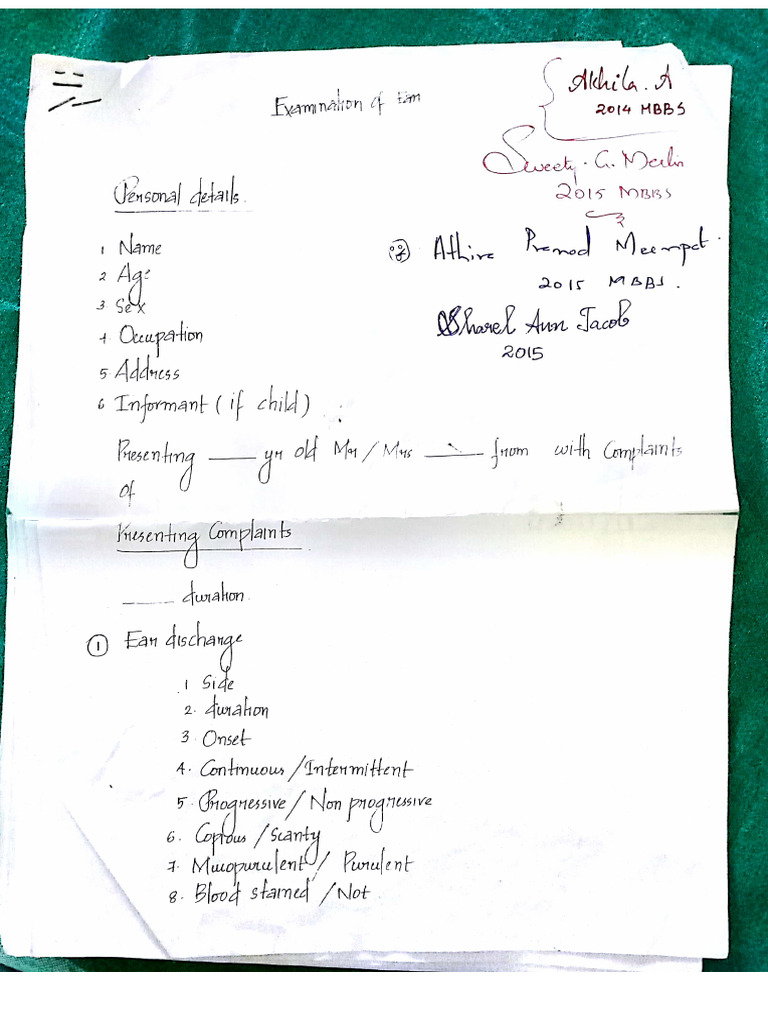 Examination of Ear
Akhila. A
2014 MBBS
Sweety. G. Merlin
2015 MBBS
Personal details.
1 Name
Athira Pramod
2 Age
2015 MBBS.
3 Sex
Sharel Ann Jacob
4 Occupation
2015
5. Address
6 Informant ( if child )
Presenting ____ yr old Mr / Mrs ____ from with Complaints
of
Presenting Complaints
____ duration.
① Ear discharge
1 Side
2. duration
3 Onset
4. Continuous / Intermittent
5. Progressive / Non progressive
6. Copious / Scanty
7. Mucopurulent / Purulent
8. Blood stained / Not